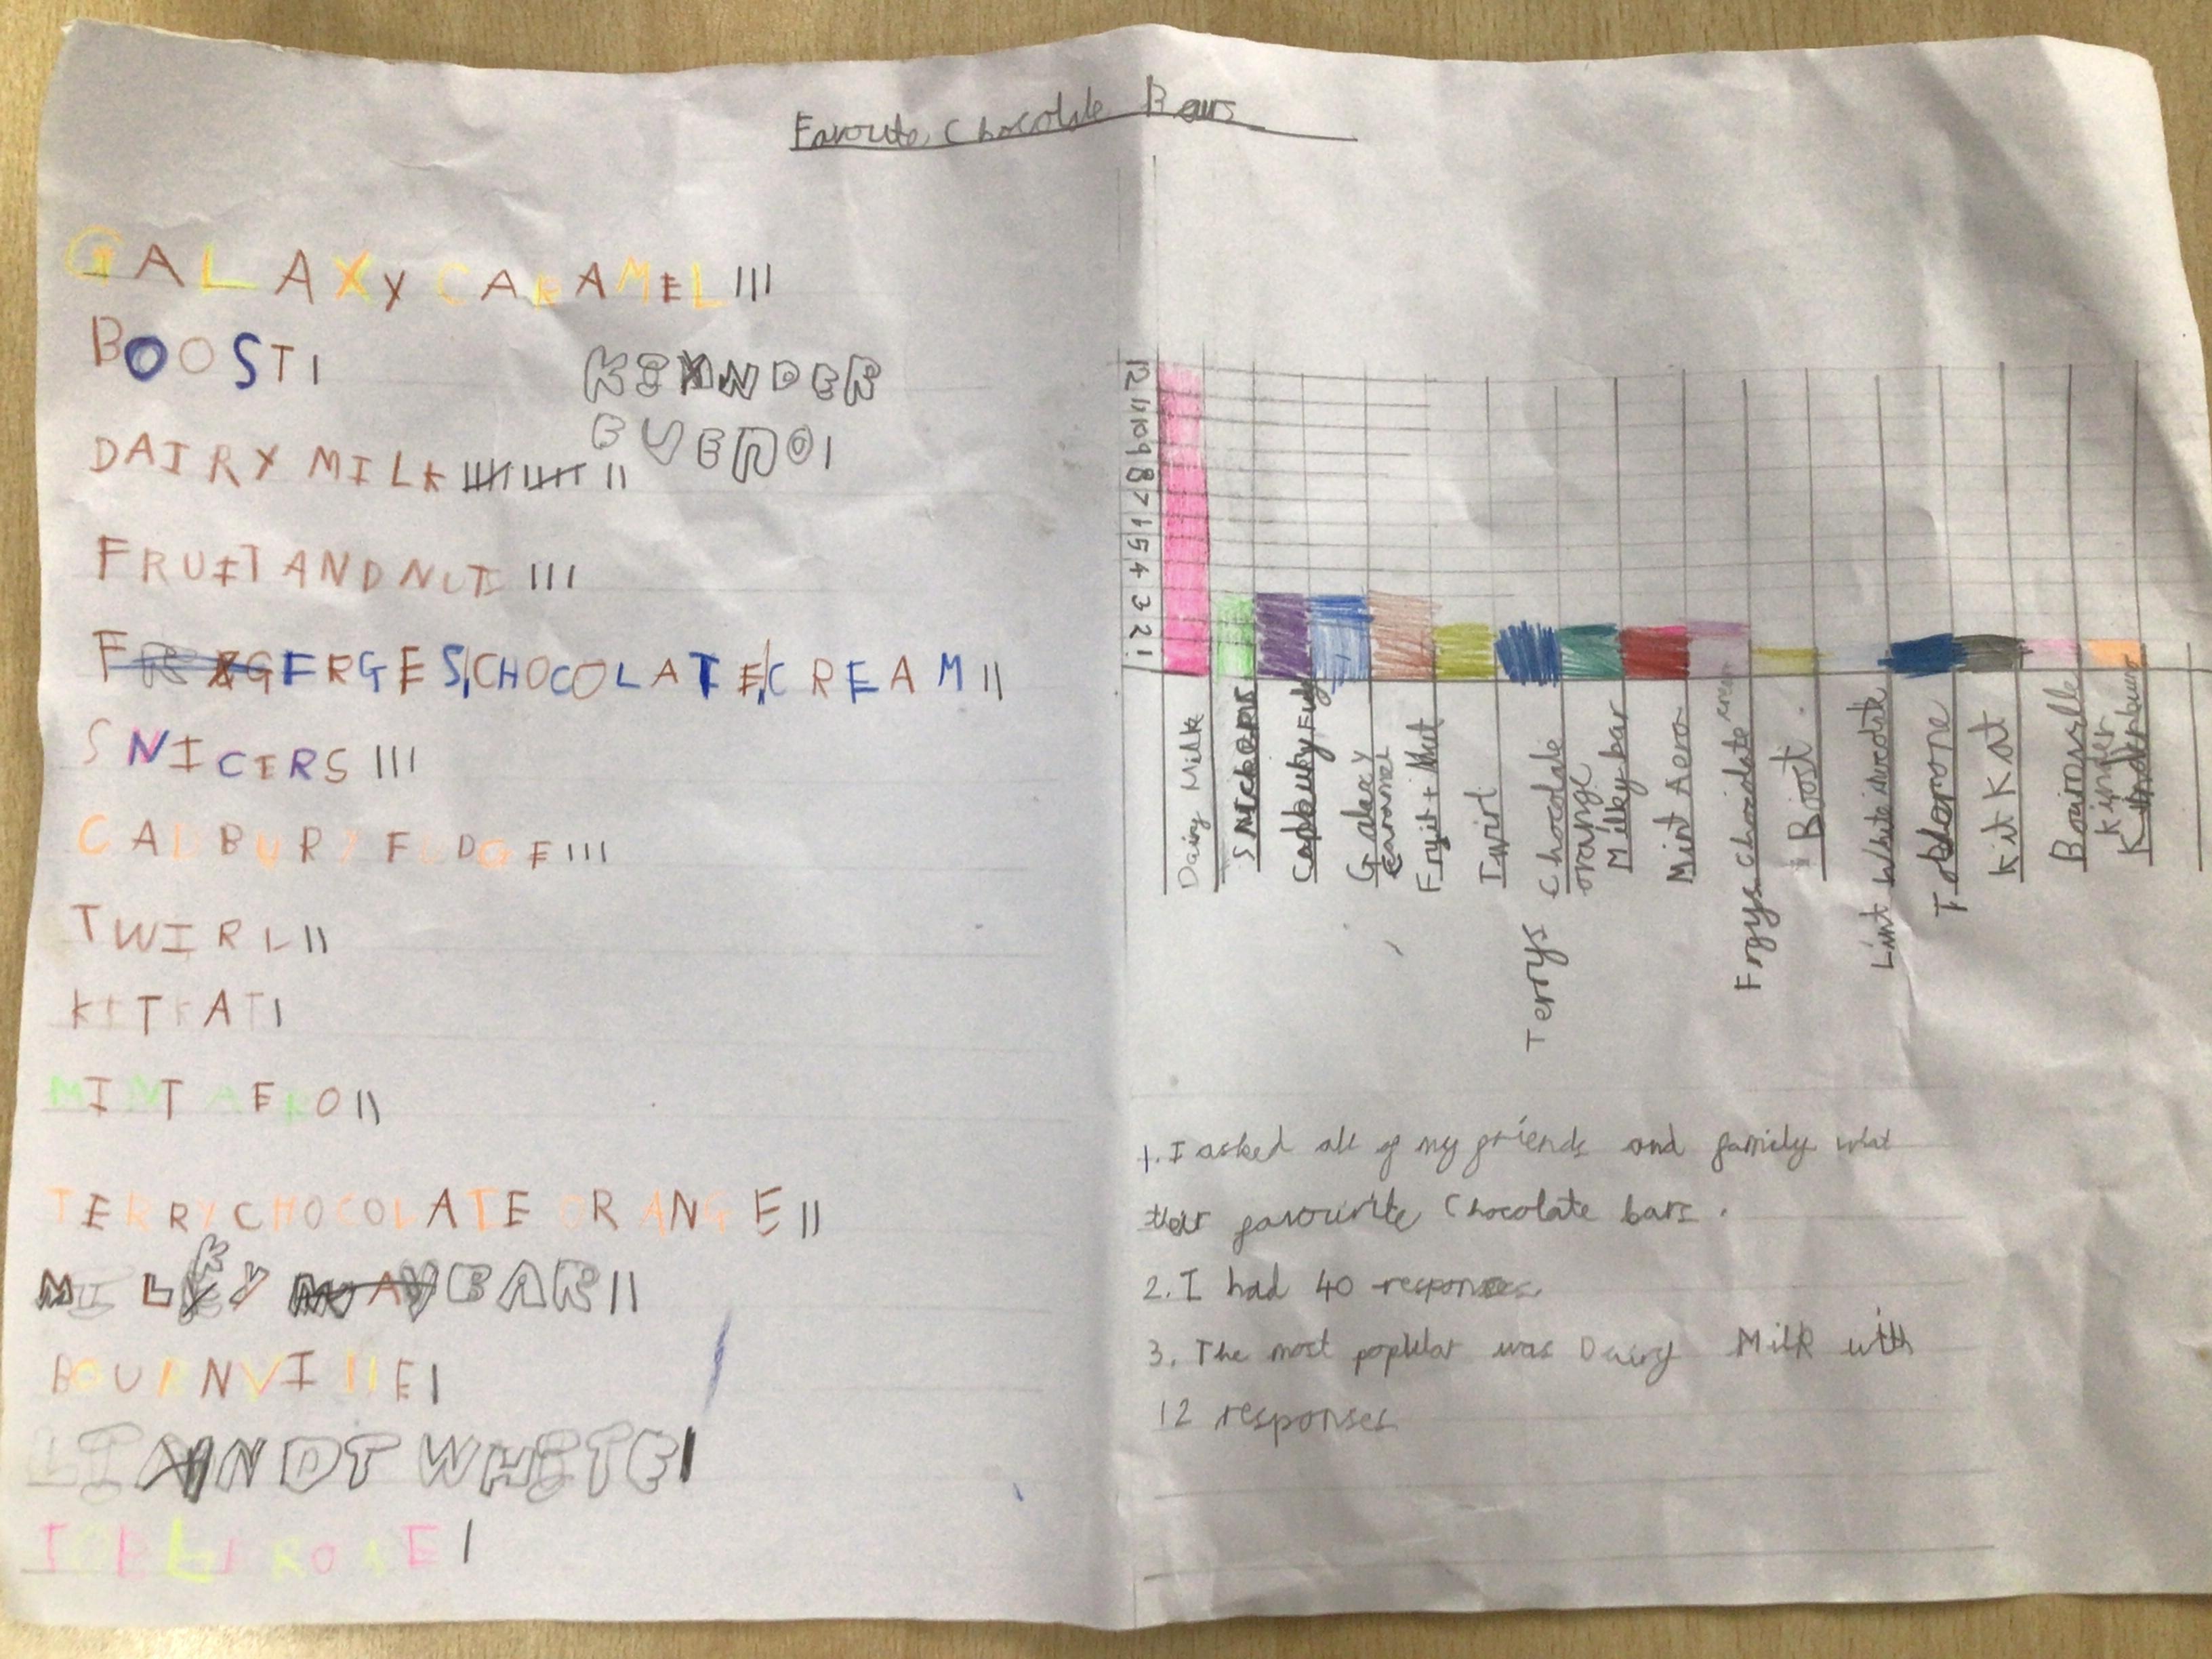 Favoute Chocolate Bars
GALAXY CARAMEL III
BOOST I
KINDER
BUENO I
DAIRY MILK IIII IIII II
FRUIT AND NUT III
FERGES CHOCOLATE CREAM II
SNICERS III
CADBURY FUDGE III
TWIRL II
KITKAT I
MINT AERO II
TERRY CHOCOLATE ORANGE II
MILKY BAR II
BOURNVILLE I
LINDT WHITE I
TOBLERONE I
12
11
10
9
8
7
5
4
3
2
1
Dairy Milk
Snickers
Cadbury Fudge
Galaxy
caramel
Fruit + Nut
Twirl
Terrys Chocolate
orange
Milkybar
Mint Aero
Frgys Chocolate cream
Boost
Lint white
Toblerone
Kit Kat
Kinder
1. I asked all of my friends and family what
their favourite Chocolate bars.
2. I had 40 responses
3. The most poplular was Dairy Milk with
12 responses